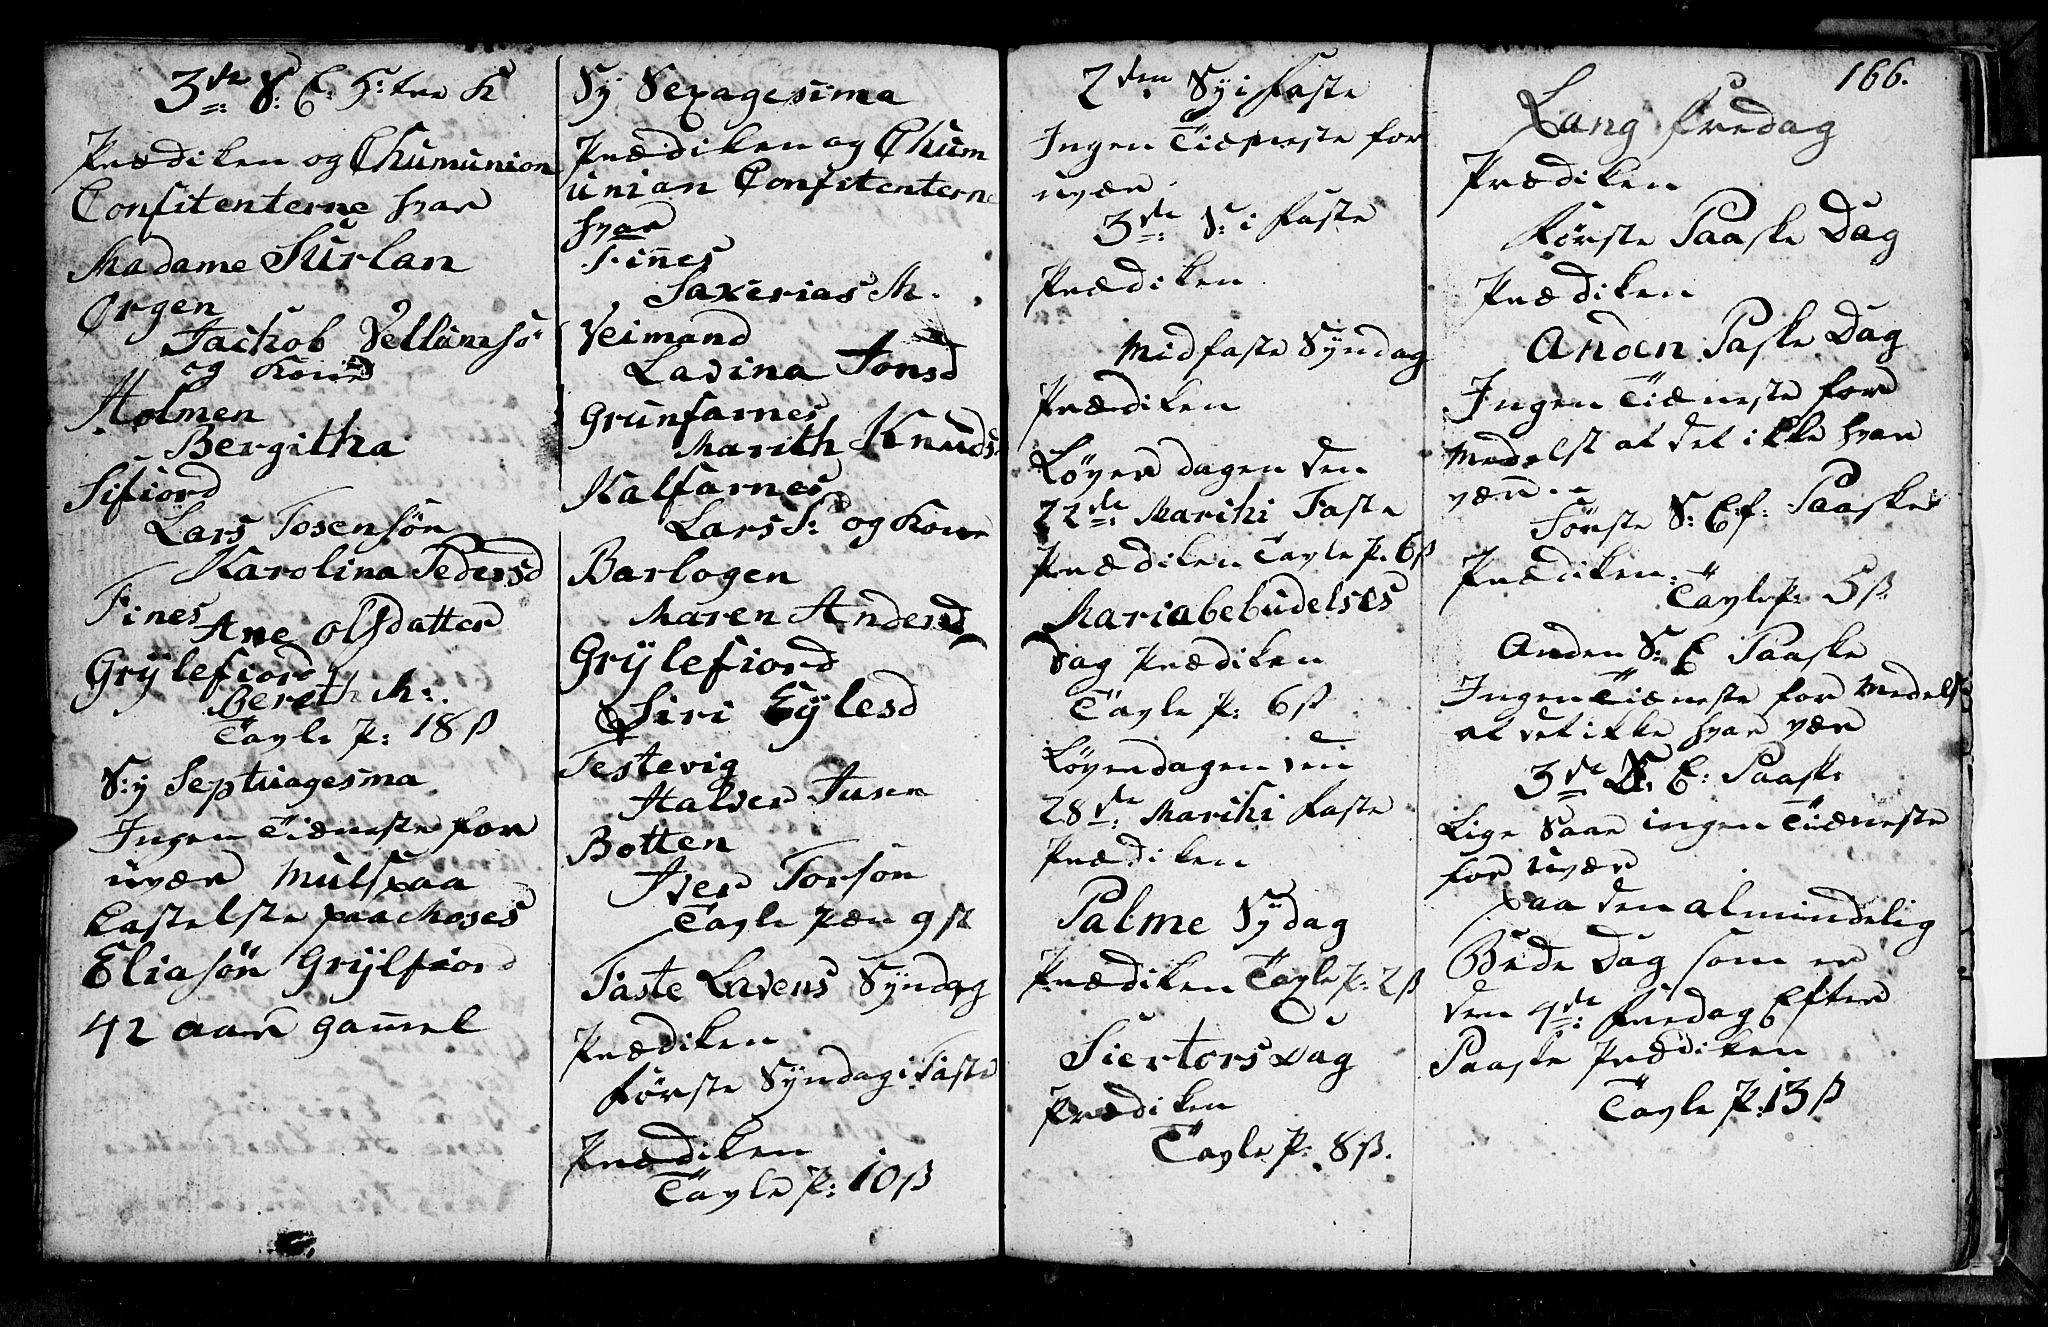 3de S: E: H: tre K
Prædiken og Chumunion
Confitenterne hvar
Madame Surlan
Ørgen
Jachob Vellumsø
og Kone
Holmen
Bergitha
Sifiord
Lars Tosensøn
Karolina Pedersd
Fines
Ane Olsdatter
Grÿlefiord
Bereth M:
Tavle P: 18 β
S:y Septuagesima
Ingen Tiæneste for
uvær
Castelste paa Moses
Eliasøn Grÿlfiord
42 aar gam̄el
Sy Sexagesima
Prædiken og Chum
union Confitenterne
hvar
Fin̄es
Saxerias M.
Veimand
Lavina Jonsd
Grunfarnes
Marith Knuds
Kalfarnes
Lars J: og Kone
Barlogen
Maren Andersd
Grÿlefiord
Siri Eÿlesd
Testevig
Halver Jure
Botten
Iver Torsøn
Tavle Pæn 9 β
Faste Lavens Sÿndag
Prædiken
Første Sÿndag i Faste
Prædiken
Tavle P: 10 β
2den Sy i Faste
Ingen Tiæneste for
uvær
3de S: i Faste
Prædiken
Midfaste Sÿndag
Prædiken
Løver dagen den
22de Marthi Faste
Prædiken Tavle P. 6 β
Mariabebudelses
Dag Prædiken
Tavle P: 6 β
Løverdagen den
28de: Marthi Faste
Prædiken
Palme Sÿdag
Prædiken Tavle P: 2 β
Siertorsdag
Prædiken
Tavle P: 8 β.
166.
Lang fredag
Prædiken
Første Paaske Dag
Prædiken
Anden Paske Dag
Ingen Tiæneste for
Medelst at det ikke hvar
vær.
Første S: Ef: Paaske
Prædiken.
Tavle P: 5 β
Anden S: E Paaske
Ingen Tiæneste for Medelst
at det ikke hvar vær
3de S: E: Paaske
Lige saae ingen Tiæneste
for uvær
paa den almindelig
Bede Dag som er
den 4de: fredag Efter
Paaske Prædiken
Tavle P: 13 β